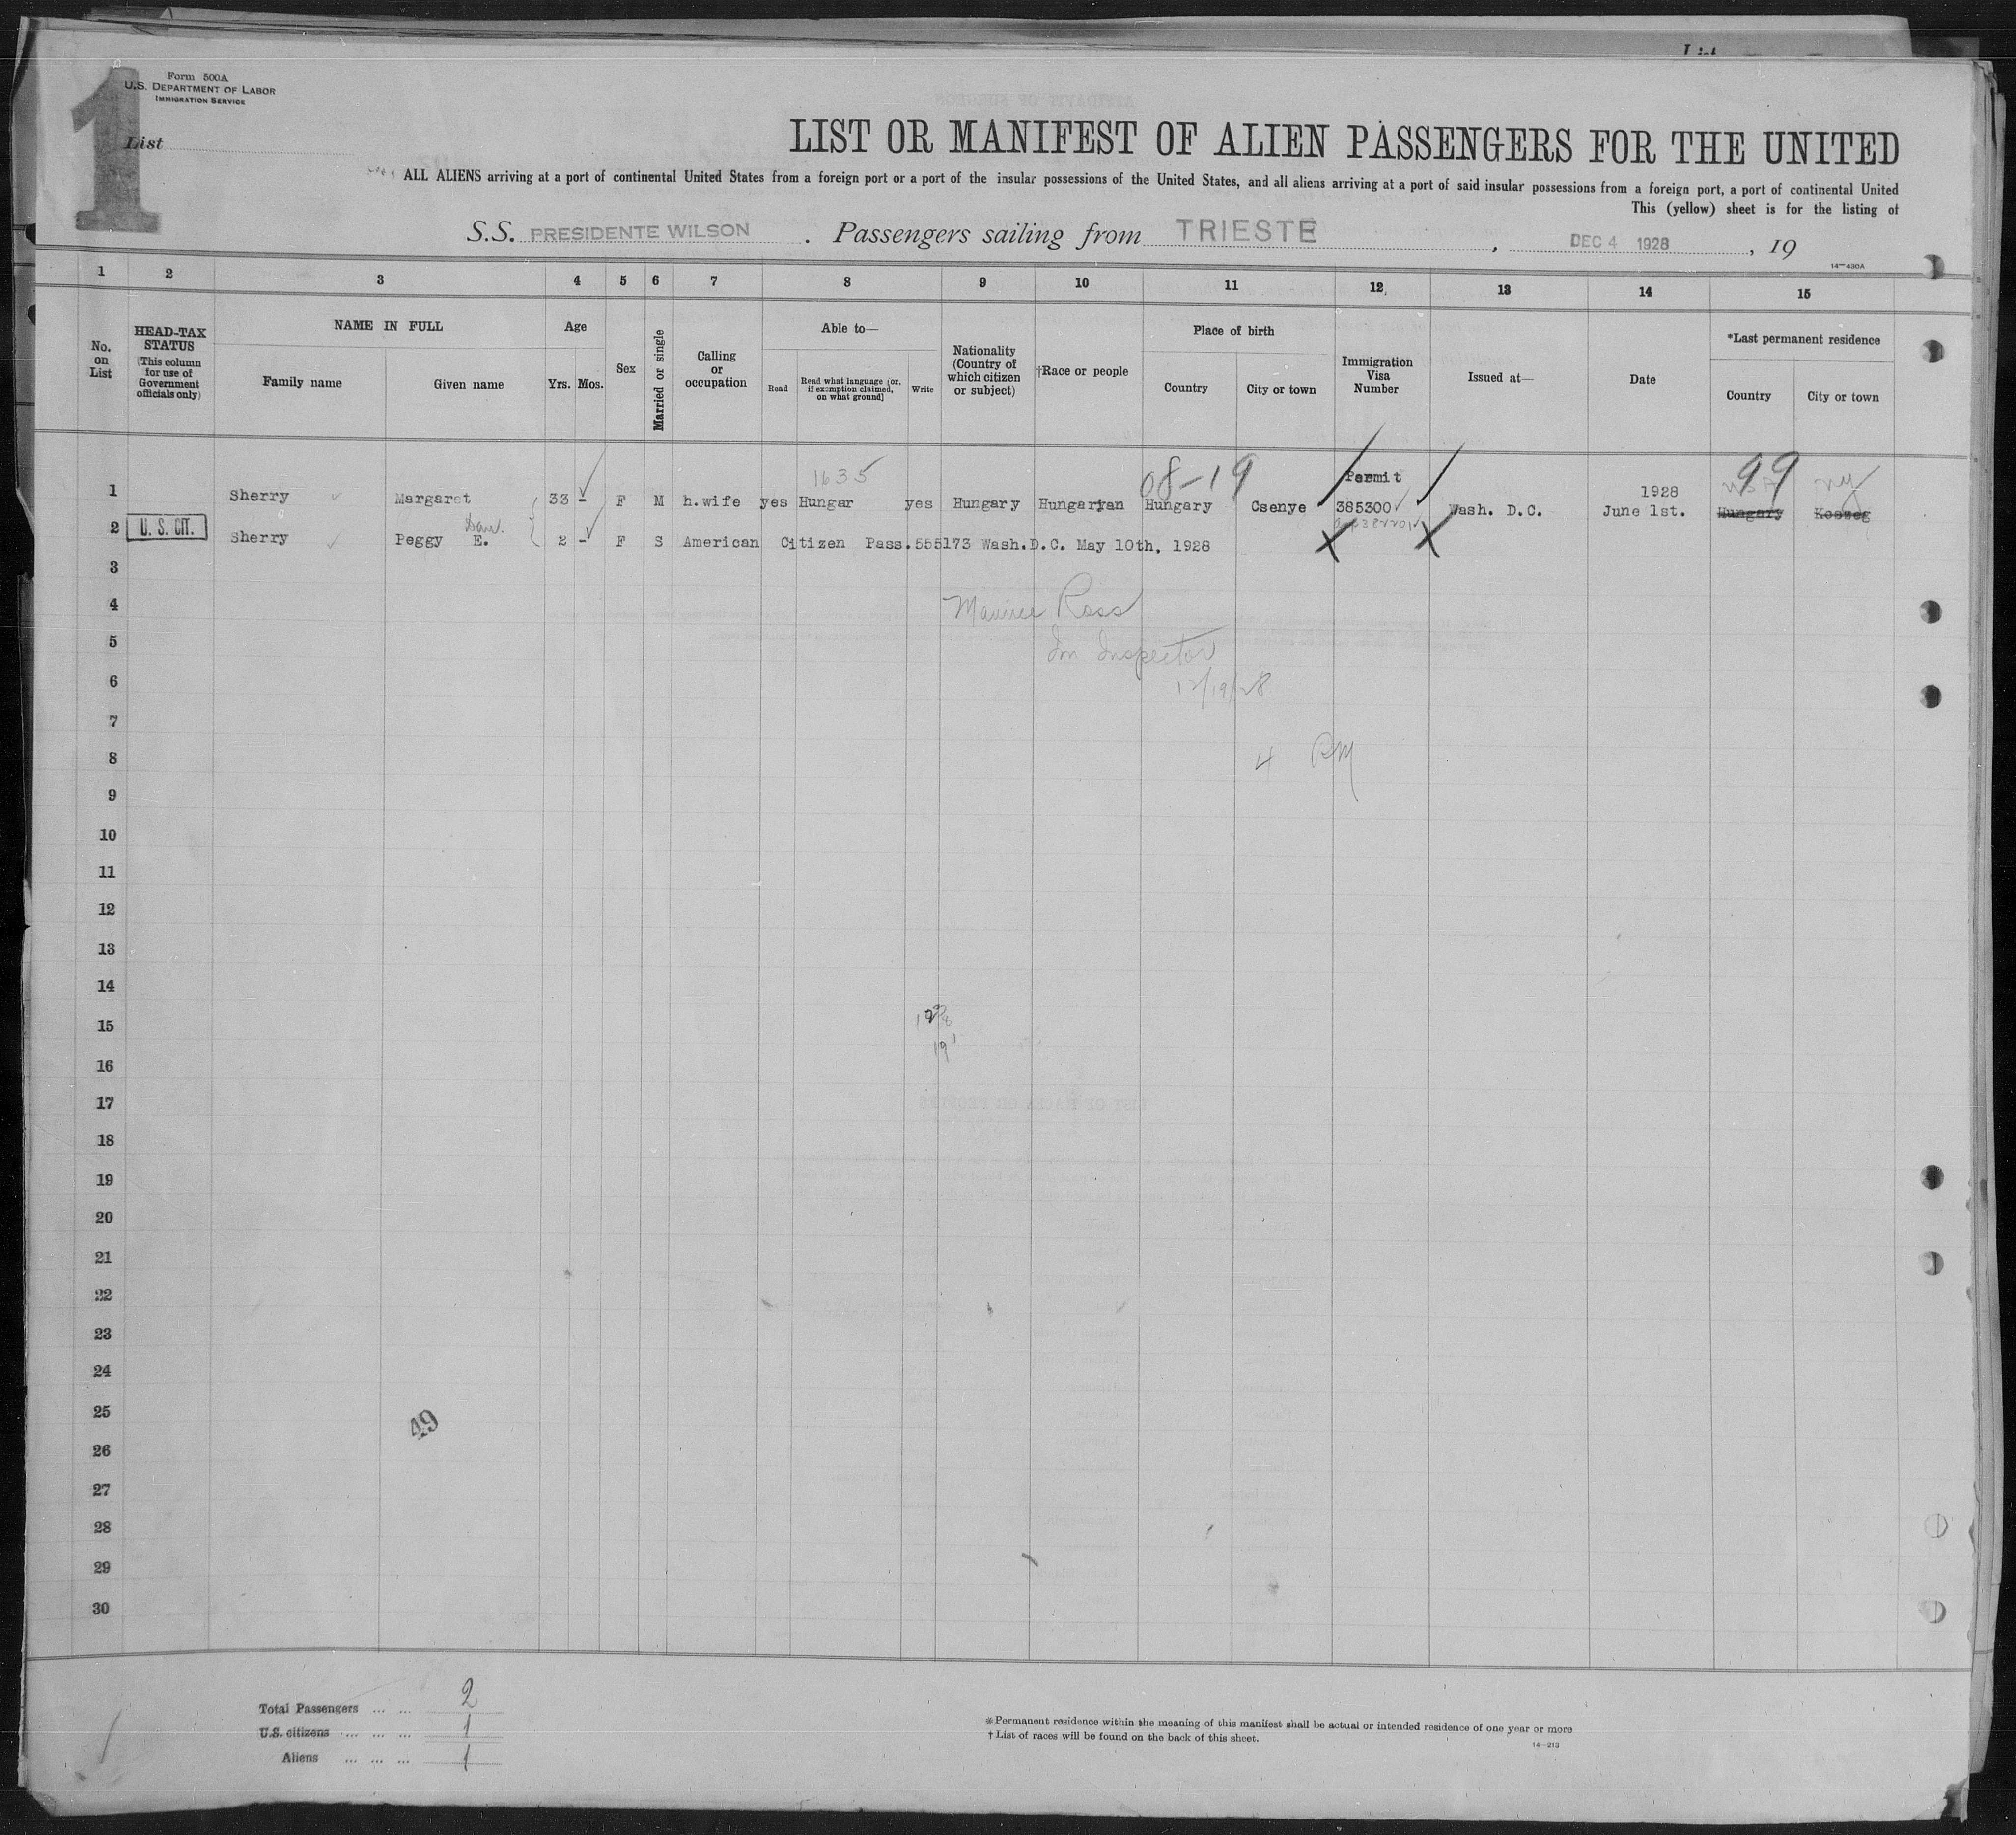 List
1
Form 500A
U.S. DEPARTMENT OF LABOR
IMMIGRATION SERVICE
List
LIST OR MANIFEST OF ALIEN PASSENGERS FOR THE UNITED
ALL ALIENS arriving at a port of continental United States from a foreign port or a port of the insular possessions of the United States, and all aliens arriving at a port of said insular possessions from a foreign port, a port of continental United
This (yellow) sheet is for the listing of
S.S. PRESIDENTE WILSON . Passengers sailing from TRIESTE , DEC 4 1928 , 19
14—430A
1 2 3 4 5 6 7 8 9 10 11 12 13 14 15
No. on List
HEAD-TAX STATUS
(This column for use of Government officials only)
NAME IN FULL
Family name Given name
Age
Yrs. Mos.
Sex
Married or single
Calling or occupation
Able to—
Read
Read what language [or, if exemption claimed, on what ground]
Write
Nationality (Country of which citizen or subject)
†Race or people
Place of birth
Country City or town
Immigration Visa Number
Issued at—
Date
*Last permanent residence
Country City or town
1635 08-19 Permit 1928 99 USA NY
1 Sherry Margaret 33 - F M h.wife yes Hungar yes Hungary Hungarian Hungary Csenye 385300 Wash. D.C. June 1st. Hungary Koszeg
2 U. S. CIT. Sherry Peggy E. 2 - F S American Citizen Pass.555173 Wash.D.C. May 10th, 1928
3
4 Maurice Ross
5 Im Inspector
6 12/19/28
7
8 4 PM
9
10
11
12
13
14
15
16
17
18
19
20
21
22
23
24
25 49
26
27
28
29
30
Total Passengers ... ... 2
U.S. citizens ... ... ... 1
Aliens ... ... ... 1
*Permanent residence within the meaning of this manifest shall be actual or intended residence of one year or more
†List of races will be found on the back of this sheet.
14—213